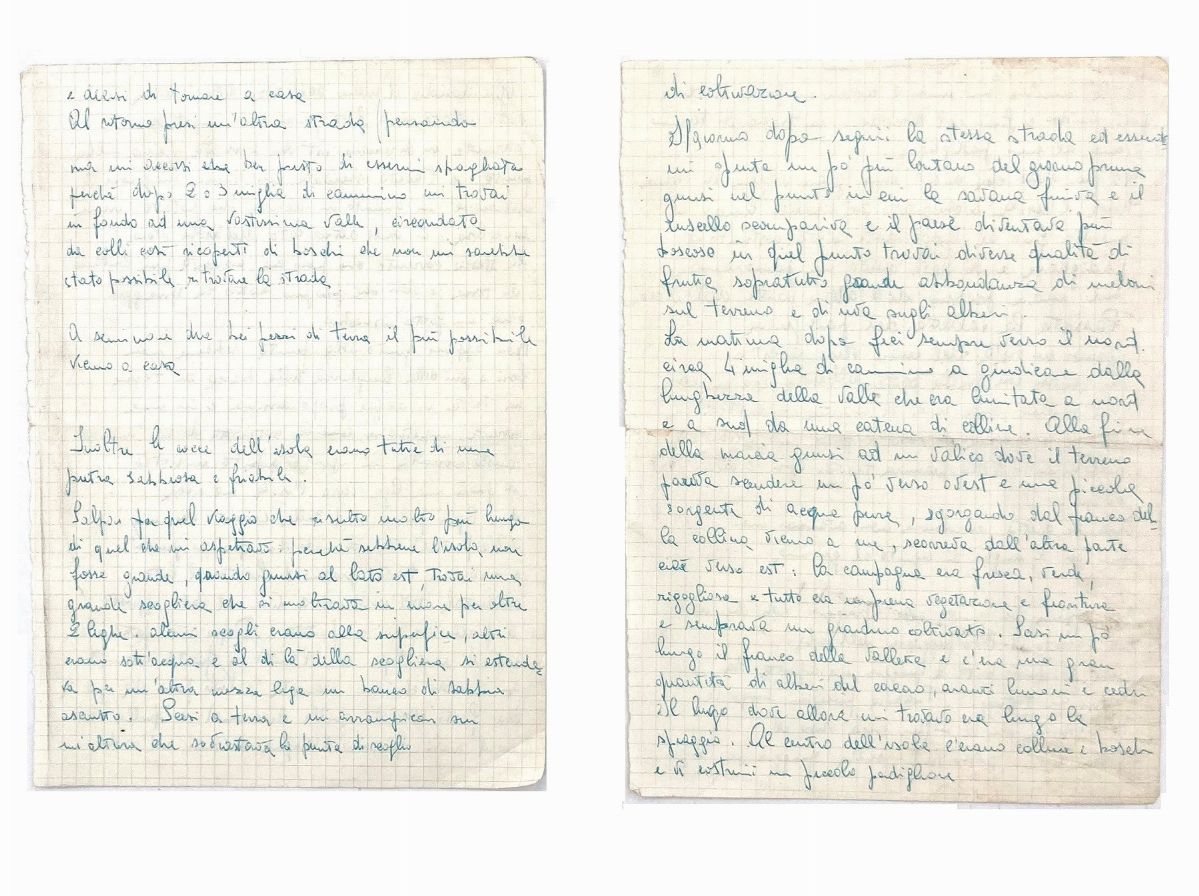 e decisi di tornare a casa
Al ritorno presi un'altra strada pensando
ma mi accorsi che ben presto di essermi sbagliata
perché dopo 2 o 3 miglia di cammino mi trovai
in fondo ad una vastissima valle, circondata
da colli così ricoperti di boschi che non mi sarebbe
stato possibile ritrovare la strada
A seminare due bei pezzi di terra il più possibile
vicino a casa
Inoltre le rocce dell'isola erano tutte di una
pietra sabbiosa e friabile.
Salpai per quel viaggio che risultò molto più lungo
di quel che mi aspettavo: perché sebbene l'isola non
fosse grande, quando giunsi al lato est, trovai una
grande scogliera che si inoltrava in mare per oltre
2 leghe. alcuni scogli erano alla superfice, altri
erano sott'acqua e al di là della scogliera si estende
va per un'altra mezza lega un banco di sabbia
asciutto. Scesi a terra e mi arrampicai su
un'altura che sovrastava la punta di scoglio
di coltivazione.
Il giorno dopo seguii la stessa strada ed essendo
mi spinto un pò più lontano del giorno prima
giunsi nel punto in cui la savana finiva e il
ruscello scompariva e il paese diventava più
boscoso in quel punto trovai diverse qualità di
frutta sopratutto grande abbondanza di meloni
sul terreno e di uva sugli alberi.
La mattina dopo feci sempre verso il nord
circa 4 miglia di cammino a giudicare dalla
lunghezza della valle che era limitata a nord
e a sud da una catena di colline. Alla fine
della marcia giunsi ad un valico dove il terreno
pareva scendere un pò verso ovest e una piccola
sorgente di acqua pura, sgorgando dal fianco del
la collina vicino a me, scorreva dall'altra parte
cioè verso est: la campagna era fresca, verde,
rigogliosa e tutto era in piena vegetazione e fioritura
e sembrava un giardino coltivato. Scesi un pò
lungo il fianco della valletta e c'era una gran
quantità di alberi del cacao, aranci limoni e cedri
Il luogo dove allora mi trovavo era lungo la
spiaggia. Al centro dell'isola c'erano colline e boschi
e vi costruii un piccolo padiglione